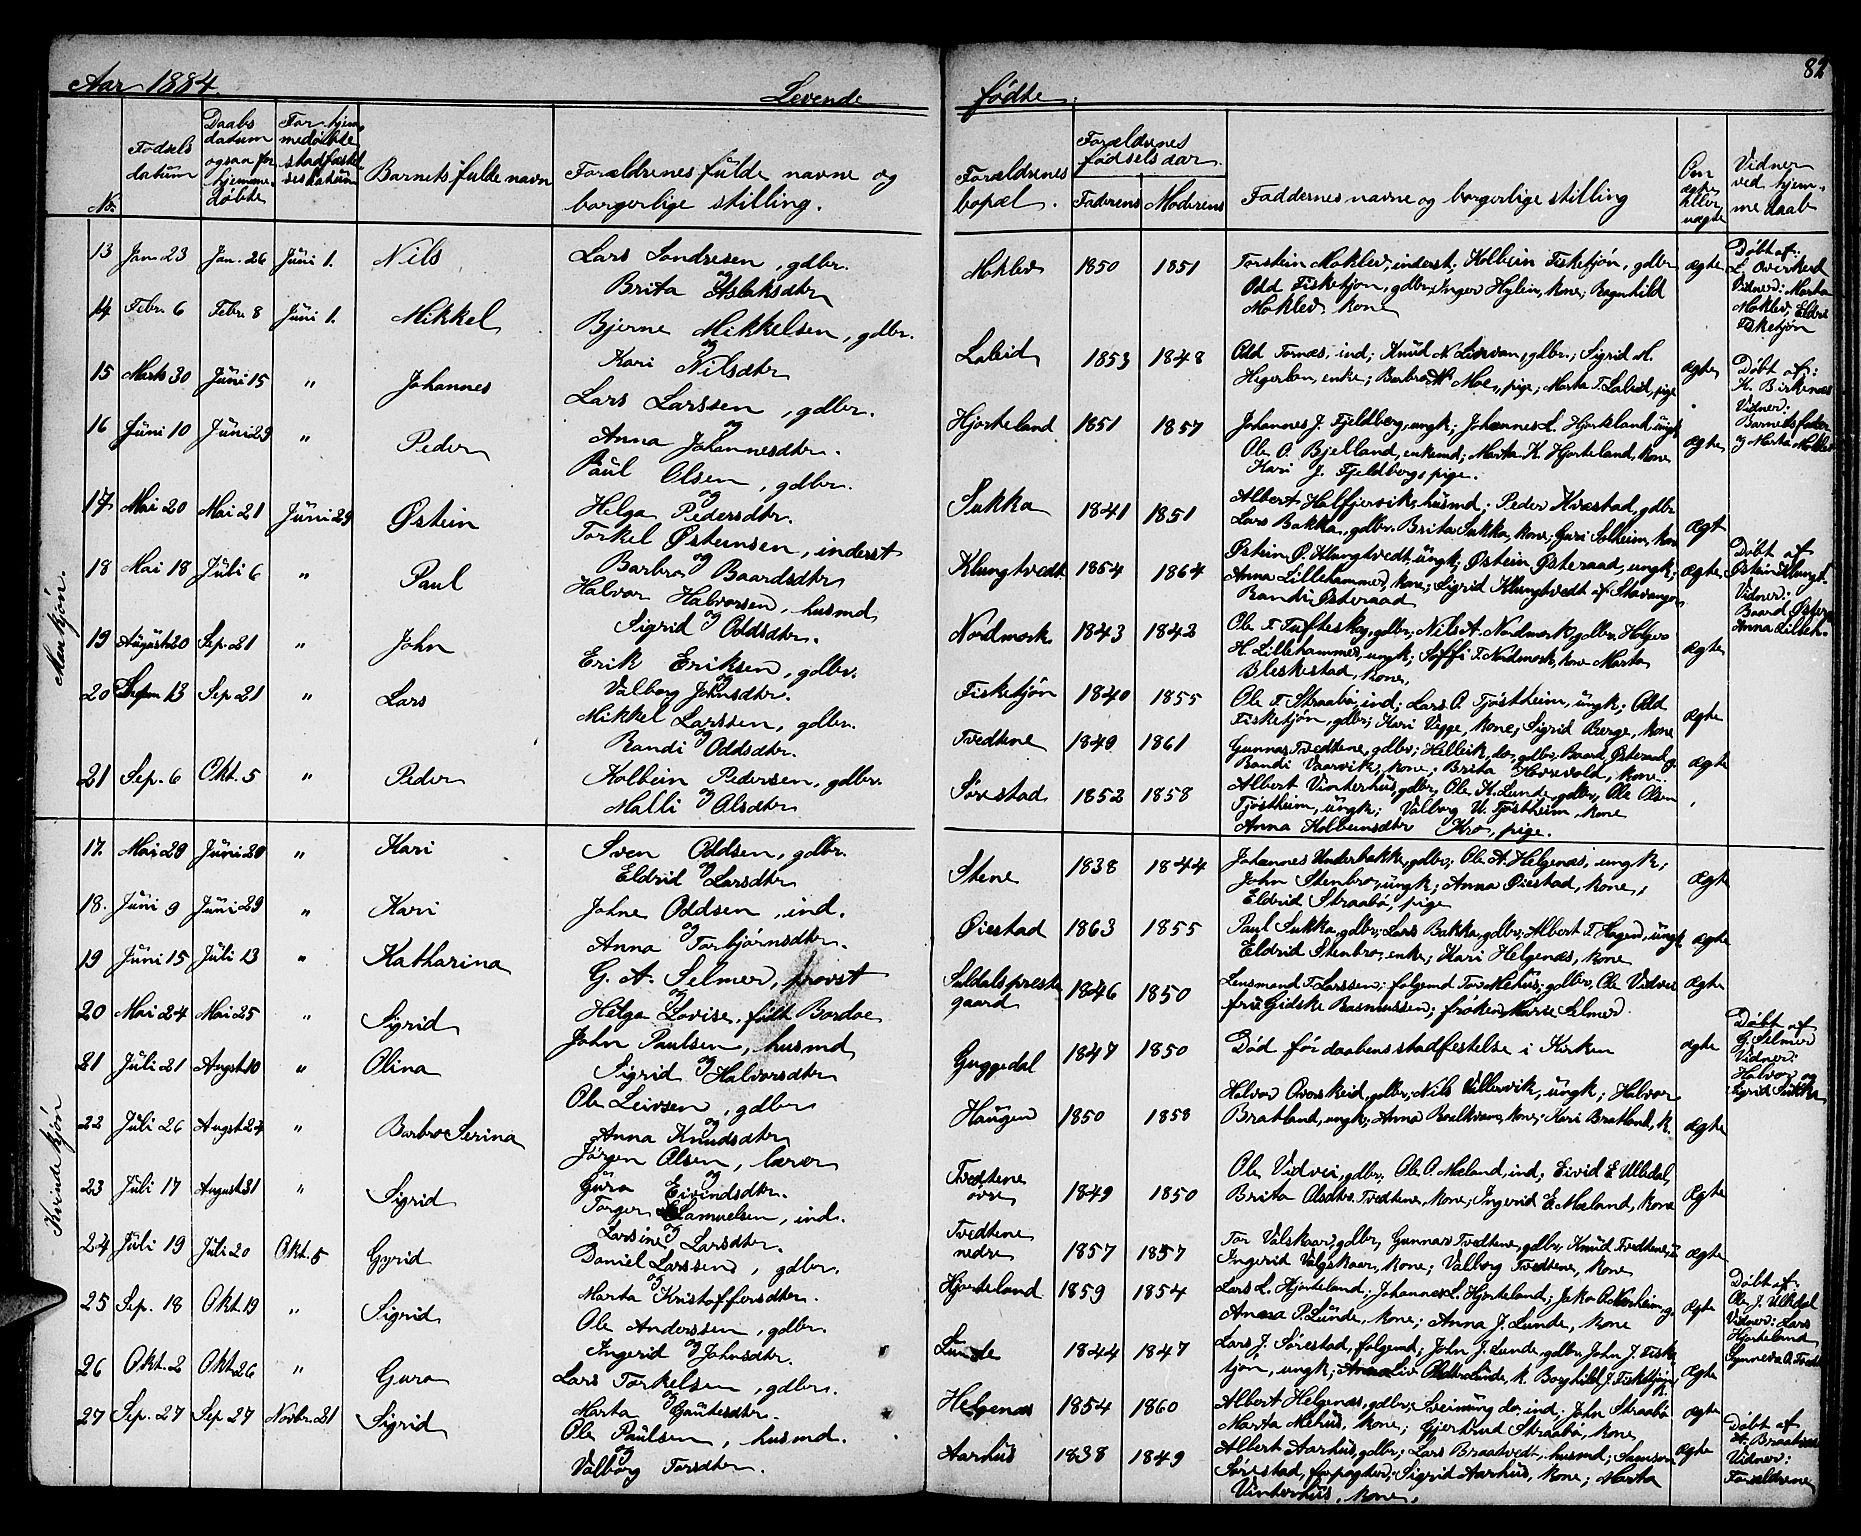 82
Aar 1884. Levende fødte.
No.
Fødsels datum
Daabs datum ogsaa for hjemme døbte
For hjem medøbte stadfæstel sesdatum
Barnets fulde navn
Forældrenes fulde navne og borgerlige stilling.
Forældrenes bopæl.
Forældrenes fødselsaar.
Faderens Moderens
Faddernes navne og borgerlige stilling
Om ægte eller uægte
Vidner ved hjem- me daab
Mankjøn.
13 Jan. 23 Jan. 26 Juni 1. Nils
Lars Sondresen, gdbr.
og
Brita Aslaksdtr
Moklev 1850 1851
Torstein Moklev, inderst; Kolbein Fisketjøn, gdbr
Odd Fisketjøn, gdbr; Inger Hylen, kone; Ragnhild
Moklev kone
ægte
Døbt af:
Vidner: Marta
Moklev, Eldri
Fisketjøn
14 Febr. 6 Febr. 8 Juni 1. Mikkel
Bjerne Mikkelsen, gdbr.
og
Kari Nilsdtr
Laleid 1853 1848
Odd Tornæs, ind; Knud N. , gdbr.; Sigrid M.
enke; Barbro N. Moe, pige; Marta T. Laleid, pige
ægte
Døbt af:
K. Birkenæs
Vidner:
Barnets fader
og Marta Moklev
15 Marts 30 Juni 15 " Johannes
Lars Larssen, gdbr.
og
Anna Johannesdtr.
Hjorteland 1851 1857
Johannes J. Fjeldberg, ungk; Johannes L. Hjorteland ungk
Ole O. Bjelland, enkemd; Marta K. Hjorteland, kone
Kari J. Fjeldberg, pige.
ægte
16 Juni 10 Juni 29 " Peder
Paul Olsen, gdbr.
og
Helga Pedersdtr.
Sukka 1841 1851
Albert Halfjervik, husmd; Peder Kvæstad, gdbr
Lars Bakka, gdbr. Brita Sukka, kone; Guri Solheim, kon
ægt
17 Mai 20 Mai 21 Juni 29 Østein
Torkel Østeinsen, inderst
og
Barbro Baardsdtr
Klungtvedt 1854 1864
Østein Ø. Klungtvedt, ungk; Østein Østeraad, ungk;
Anna Lillehammer, kone; Sigrid Klungtvedt af Stavanger
Randi Østeraad
ægte
Døbt af
Østein Klungt.
Vidner:
Baard Østera
Anna Lilleh.
18 Mai 18 Juli 6 " Paul
Halvor Halvorsen, husmd
og
Sigrid Oddsdtr.
Nordmork 1843 1842
Ole T. Tufteskog, gdbr, Nils A. Nordmork, gdbr, Holger
H. Lillehammer, ungk; Søffi T. Nordmork, kone Marta
Bleskestad, kone.
ægte
19 August 20 Sep. 21 " John
Erik Eriksen, gdbr.
og
Valborg Johnsdtr.
Fisketjøn 1840 1855
Ole T. Straabø, ind; Lars O. Tjøstheim, ungk; Odd
Fisketjøn, gdbr; Kari Vigge, kone; Sigrid Berge, kone
ægte
20 Sep 13 Sep 21 " Lars
Mikkel Larssen, gdbr.
og
Randi Oddsdtr.
Tvedtene 1849 1861
Gunnar Tvedtene, gdbr; Helleik do, gdbr, Baard Østeraad g.
Randi Vaarvik, kone; Brita Hovevold, kone
ægte
21 Sep. 6 Okt. 5 " Peder
Kolbein Pedersen, gdbr.
og
Malli Olsdtr
Sørestad 1852 1858
Albert Vinterhus, gdbr, Ole K. Lunde, gdbr, Ole Olsen
Tjøstheim, ungk; Valborg Tjøstheim, kone
Anna Kolbeinsdtr Kro, pige.
Kvindekjøn
17. Mai 28 Juni 20 " Kari
Sven Oddsen, gdbr.
og
Eldrid Larsdtr
Stene 1838 1844
Johannes Underbakke, gdbr; Ole A. Helgenæs, ungk;
John Stenbro, ungk; Anna Øiestad, kone,
Eldrid Straabø, pige
ægte
18. Juni 9 Juni 29 " Kari
Johne Oddsen, ind.
og
Anna Torbjørnsdtr.
Øiestad 1863 1855
Paul Sukka, gdbr; Lars Bakka, gdbr; Albert T. Hagen, ungk
Eldrid Stenbro, enke; Kari Helgenæs, kone
ægte
19 Juni 15 Juli 13 " Katharina
G. A. Selmer, provst
og
Helga Lovise, født Bordoe
Suldalspreste
gaard 1846 1850
Lensmand T. Larssen; følgemd Tor Mehus; gdbr, Ole Vidvei
fru Gidske Rasmussen; frøken Marie Selmer.
ægte
20 Mai 24 Mai 25 " Sigrid
John Paulsen, husmd
og
Sigrid Halvorsdtr
Guggedal 1847 1850
Død før daabens stadfestelse i Kirken
ægte
Døbt af
G. Selmer
Vidner:
Halvor og
Sigrid Sukka
21 Juli 21 Augst 10 " Olina
Ole Leivsen, gdbr
og
Anna Knudsdtr
Haugen 1850 1858
Halvor Overskeid, gdbr; Nils Villervik, ungk; Halvor
Bratland, ungk; Anna , kone; Kari Bratland, k.
ægte
22 Juli 26 Augst 24 " Barbro Serina
Jørgen Olsen, lærer
og
Guro Eivindsdtr.
Tvedtene
øvre 1849 1850
Ole Vidvei, gdbr; Ole O. Mæland, ind; Eivid E. Ulledal,
Brita Olsdtr. Tvedtene, kone; Ingerid E. Mæland, kone
ægte
23 Juli 17 August 31 " Sigrid
Torger Samuelsen, ind.
og
Larsine Larsdtr.
Tvedtene
nedre 1857 1857
Tor Valskaar, gdbr, Gunnar Tvedtene, gdbr; Knud Tvedtene, i
Ingerid Valgskaar, kone; Valborg Tvedtene, kone
ægte
24 Juli 19 Juli 20 Okt. 5 Gyrid
Daniel Larssen, gdbr.
og
Marta Kristoffersdtr.
Hjorteland 1859 1854
Lars L. Hjorteland; Johannes L. Hjorteland; Jako A. Nærheim, g.
Anna P. Lunde, kone; Anna J. Lunde, kone
ægte
Døbt af:
Ole J. Ulledal
Vidner: Lars
Hjorteland
Synneva O.
25 Sep. 18 Okt. 19 " Sigrid
Ole Anderssen, gdbr.
og
Ingerid Johnsdtr.
Lunde 1844 1847
Lars J. Sørestad, følgemd; John J. Lunde, gdbr, John J. Fiske
tjøn, ungk; Liv Olsdtr Lunde, k. Borghild J. Fisketjøn
ægte
26 Okt. 2 Okt. 26 " Guro
Lars Torkelsen, gdbr.
og
Marta Gautesdtr.
Helgenæs 1854 1860
Albert Helgenæs, gdbr; Sveinung do, ind; John Straabø
Marta Mehus, kone; Gjertrud Straabø, kone
ægte
27 Sep. 27 Sep 27 Novbr. 21 Sigrid
Ole Paulsen, husmd.
og
Valborg Torsdtr.
Aarhus 1838 1849
Albert Aarhus, gdbr; Lars Braatvedt, husmd; Samson
Sørestad, forpagter; Sigrid Aarhus, kone; Marta
Vinterhus, kone.
ægte
Døbt af
A. Braatvedt
Vidner:
Forældrene